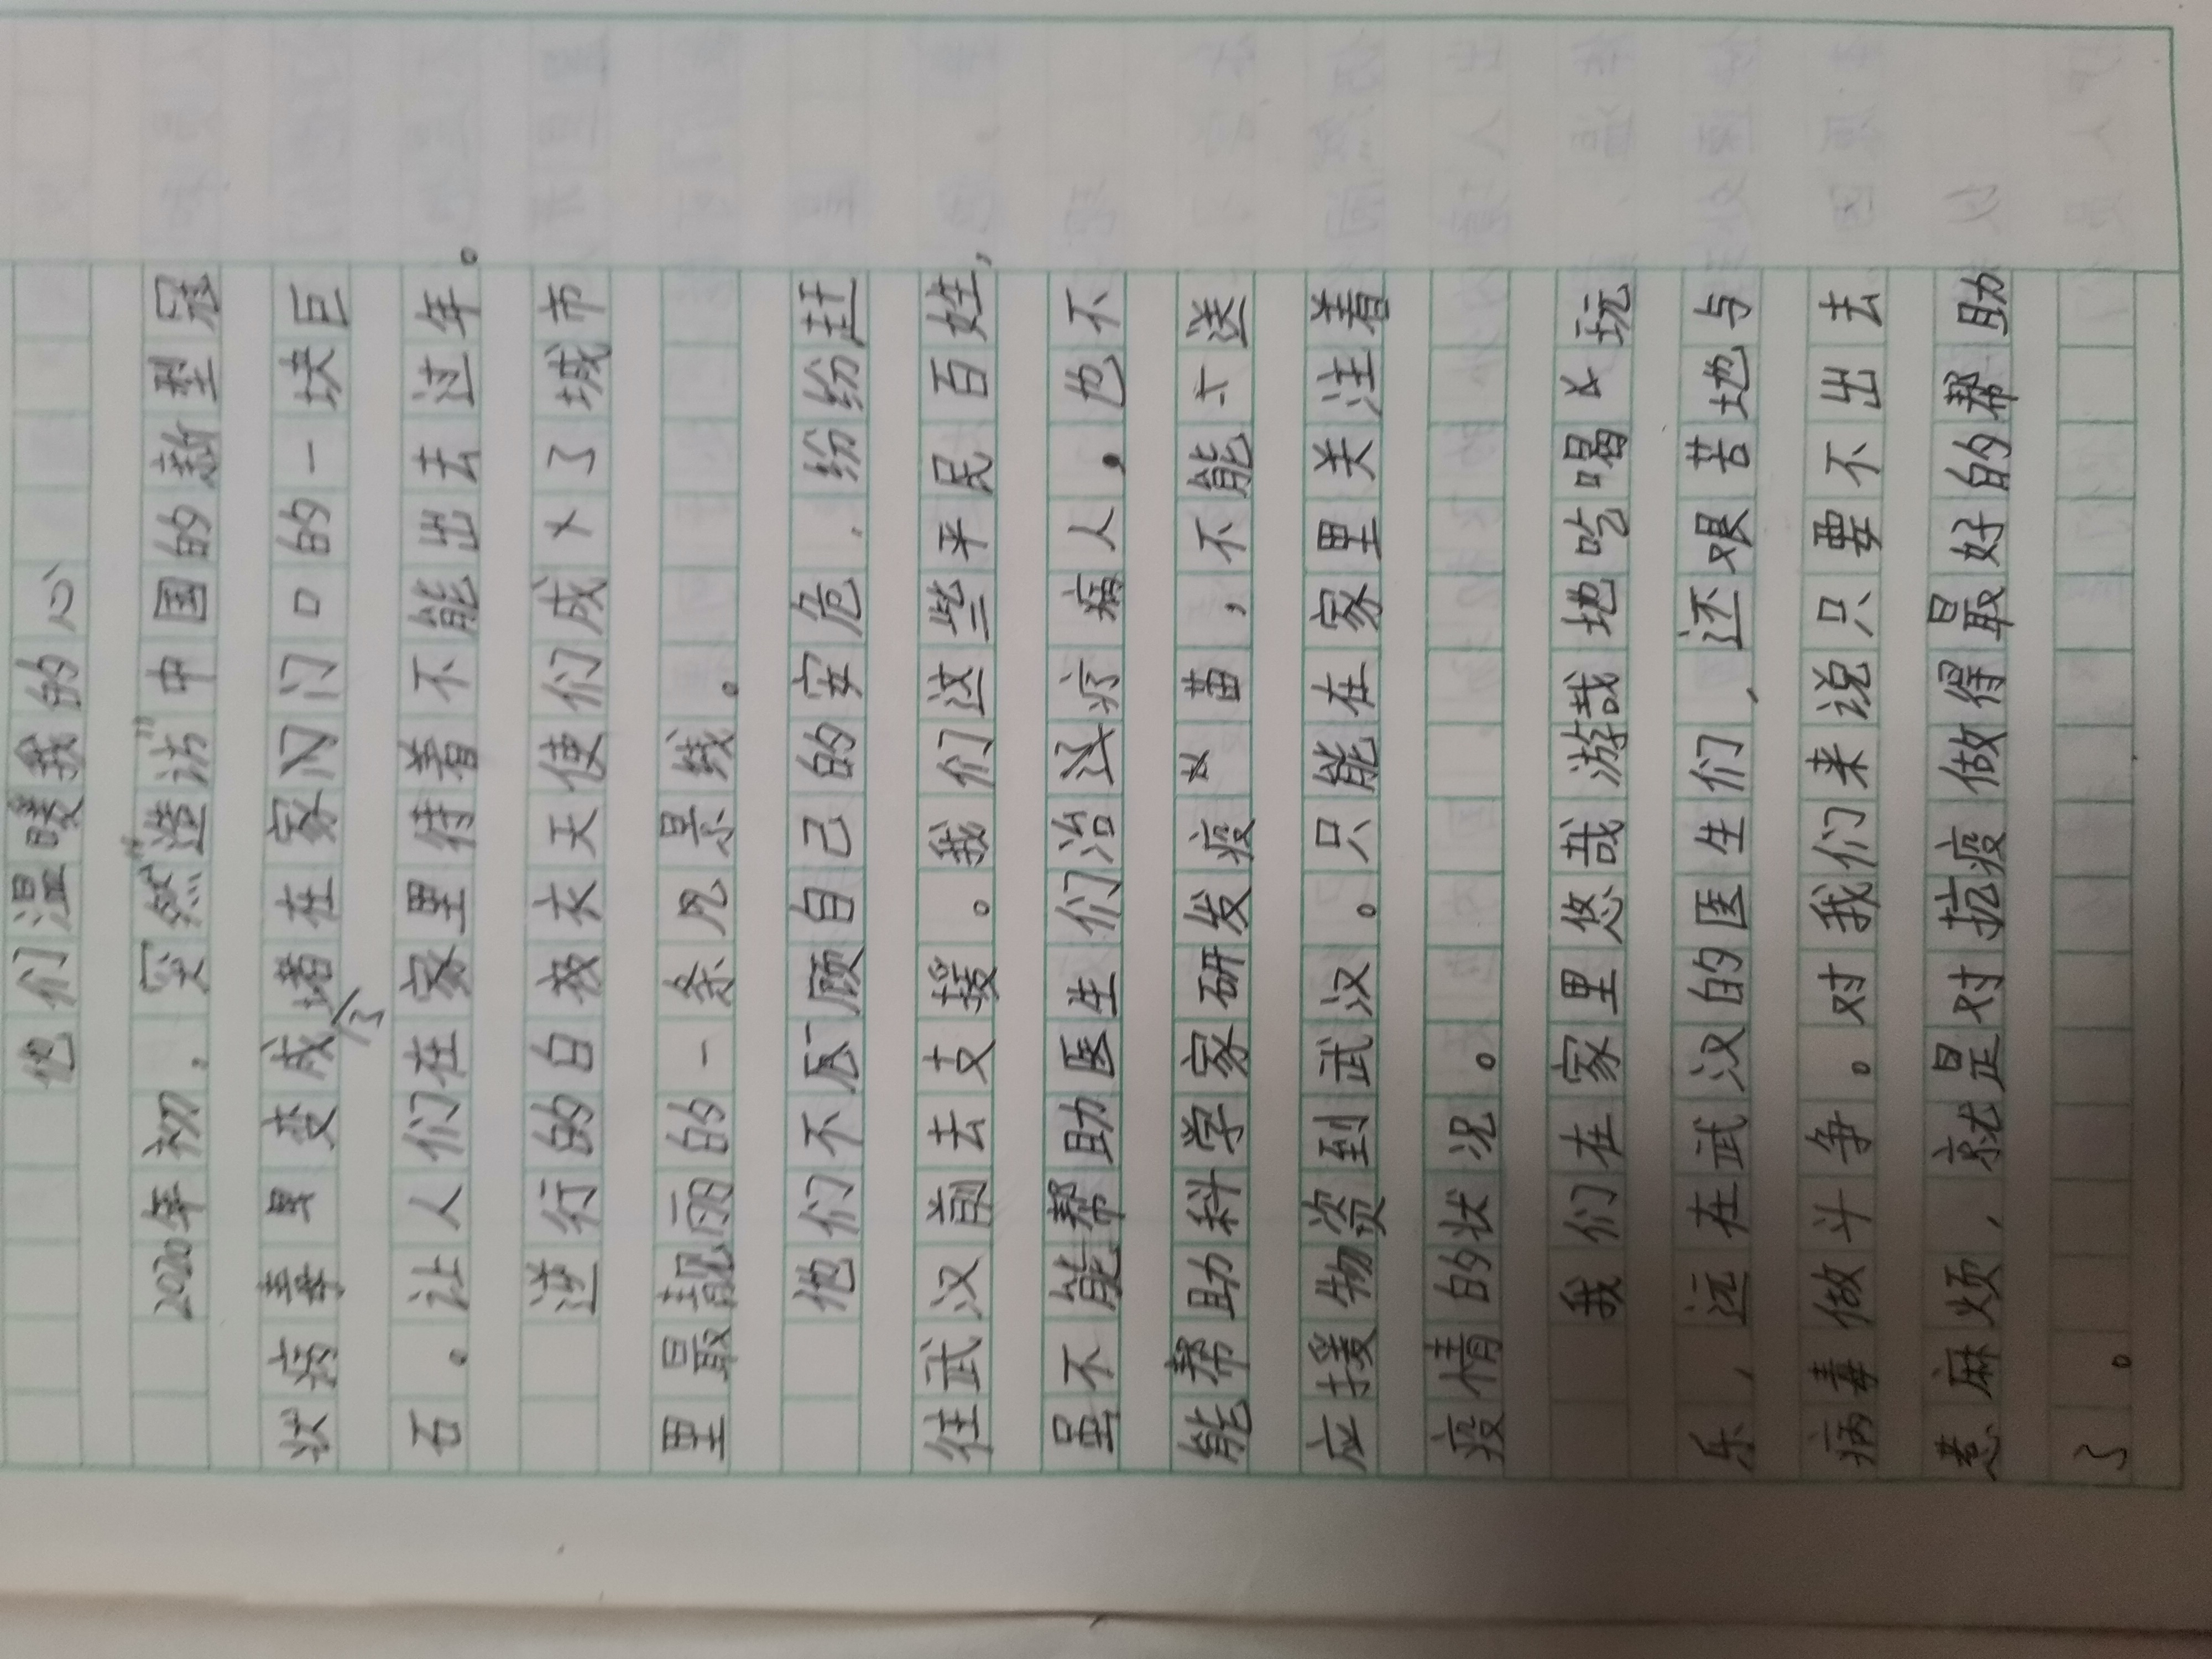 他们温暖我的心
2020年初，突然“造访”中国的新型冠
状病毒早变成了堵在家闪门口的一块巨
石。让人们在家里待着不能出去过年。
逆行的白衣衣天使们成×了城市
里最靓丽的一条风景线。
他们不反顾自己的安危．纷纷赶
往武汉前去支援。我们这些平民百姓，
虽不能帮助医生们治疗病人．也不
能帮助科学家研发疫苗，不能送
应援物资到武汉。只能在家里关注着
疫情的状况。
我们在家里悠哉游哉地吃喝玩
乐，远在武汉的医生们，还艰苦地与
病毒做斗争。对我们来说只要不出去
惹麻烦，就是对抗疫做得最好的帮助
了。